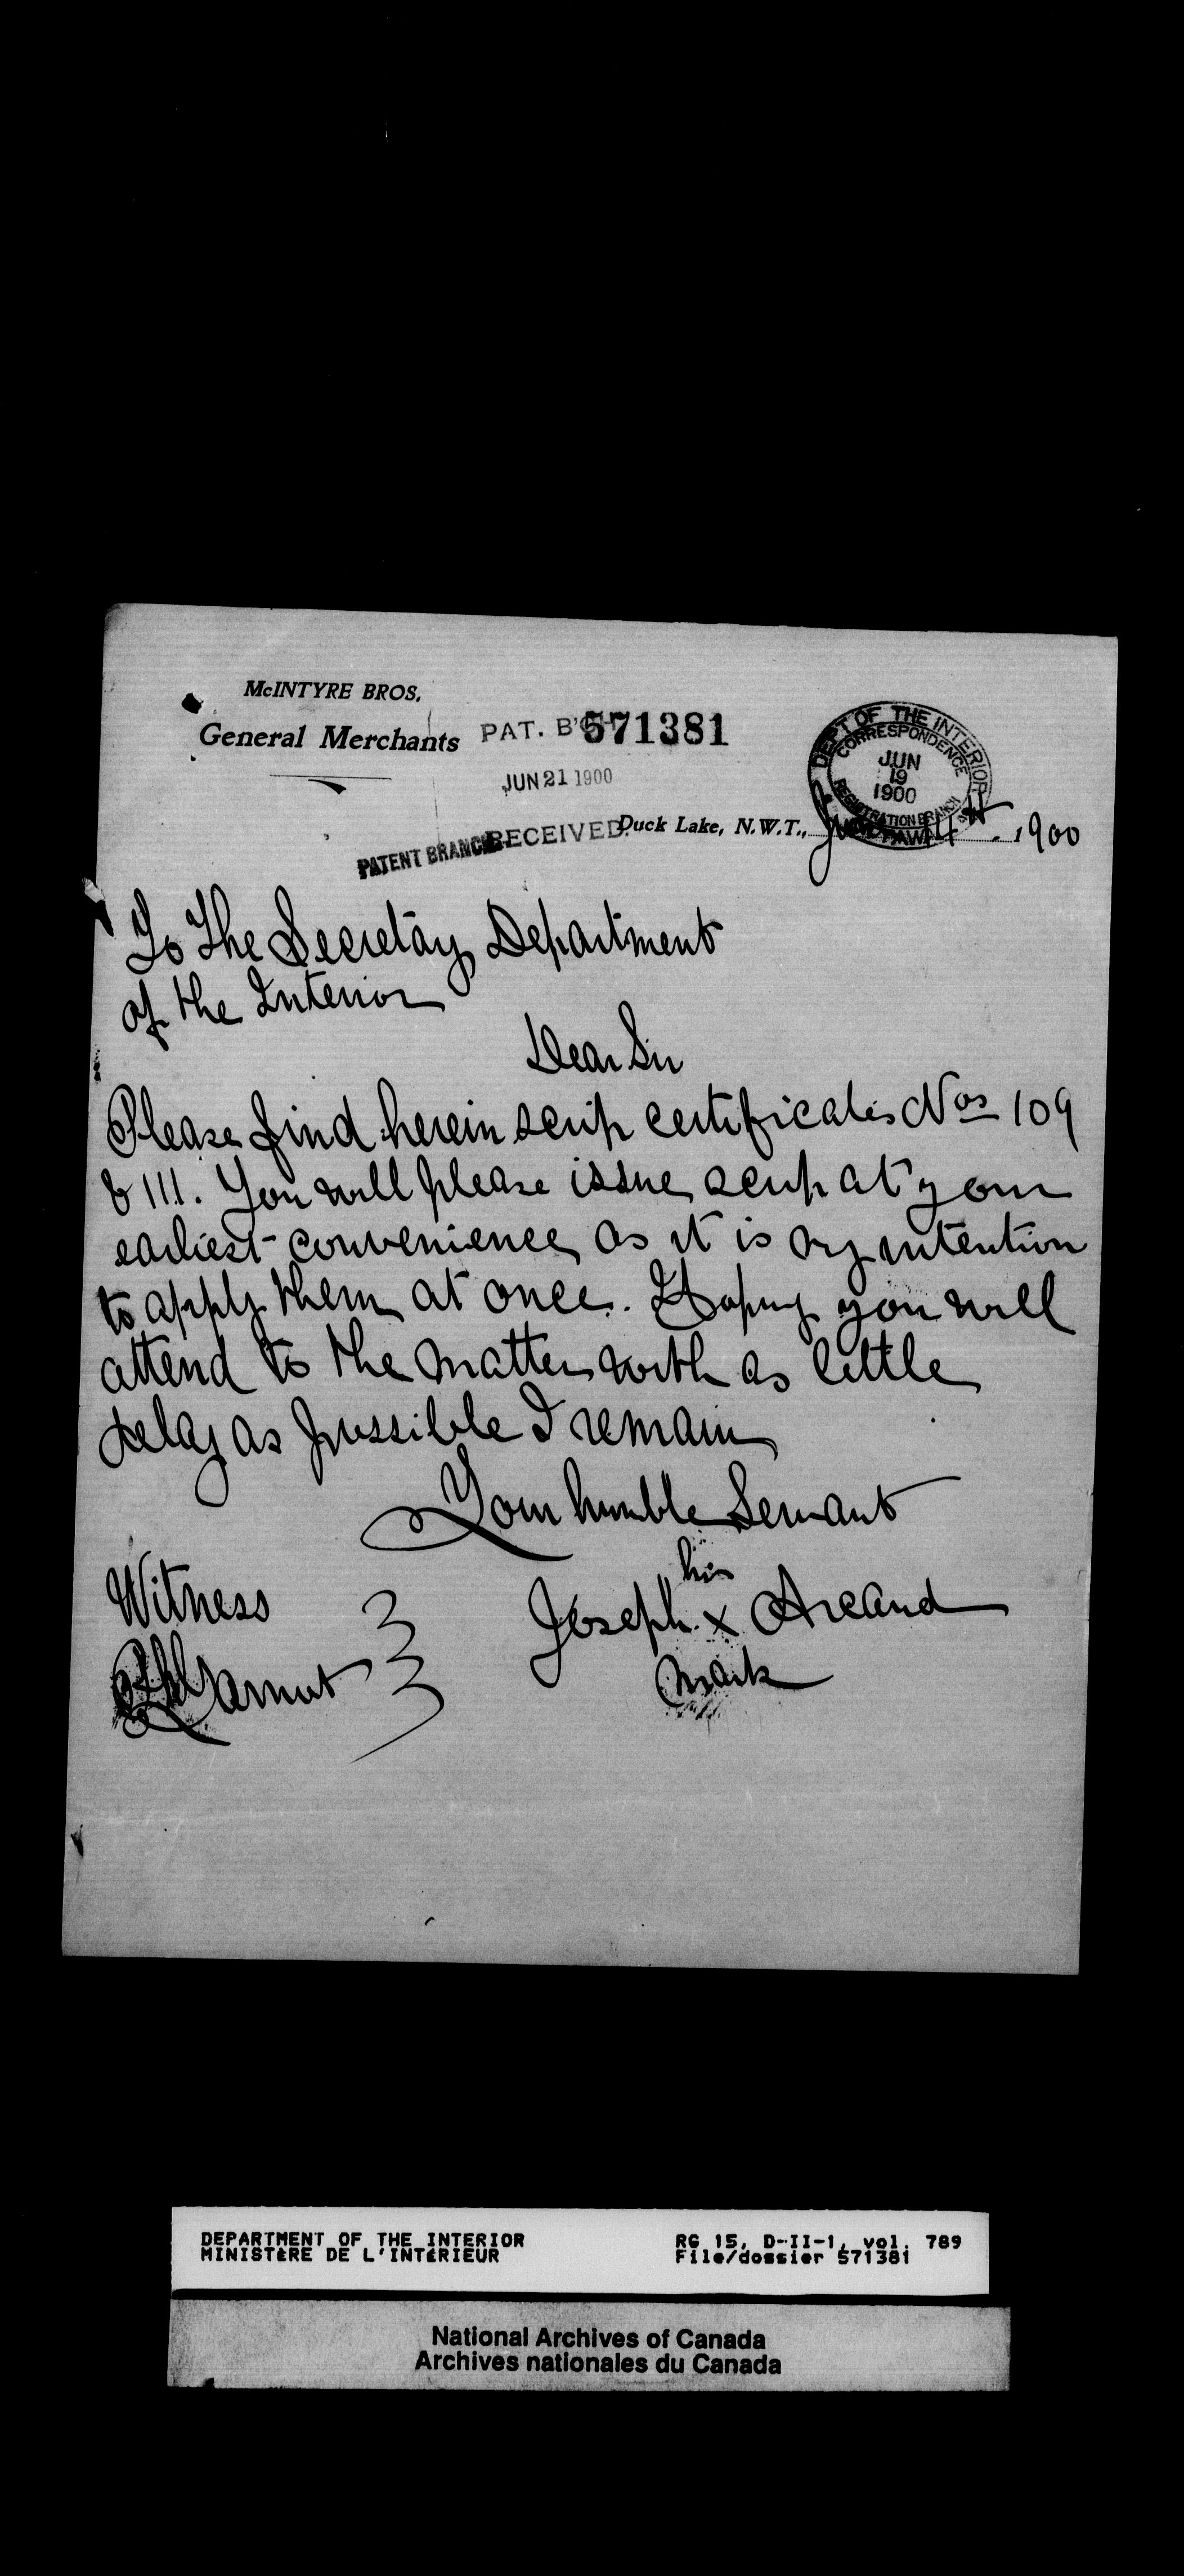 McINTYRE BROS.
General Merchants
PAT. B'CH
571381
JUN 21 1900
RECEIVED
PATENT BRANCH
DEPT OF THE INTERIOR
CORRESPONDENCE
JUN
19
1900
REGISTRATION BRANCH
OTTAWA
Duck Lake, N.W.T., June 14th 1900
To The Secretary Department
of the Interior
Dear Sir
Please find herein scrip certificates Nos 109
& 111. You will please issue scrip at your
earliest convenience as it is my intention
to apply them at once. Hoping you will
attend to the matter with as little
delay as possible I remain
Your humble Servant
his
Joseph x Arcand
mark
Witness
DEPARTMENT OF THE INTERIOR
MINISTÈRE DE L'INTÉRIEUR
RG 15, D-II-1, vol. 789
File/dossier 571381
National Archives of Canada
Archives nationales du Canada